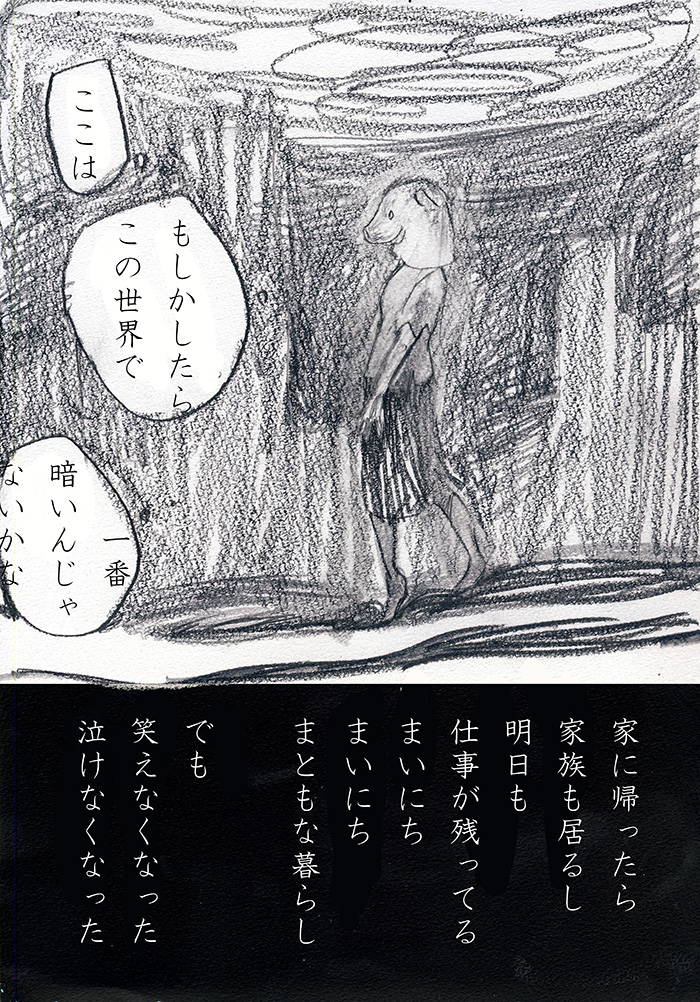 ここは
もしかしたら
この世界で
一番
暗いんじゃ
ないかな
家に帰ったら
家族も居るし
明日も
仕事が残ってる
まいにち
まいにち
まともな暮らし
でも
笑えなくなった
泣けなくなった